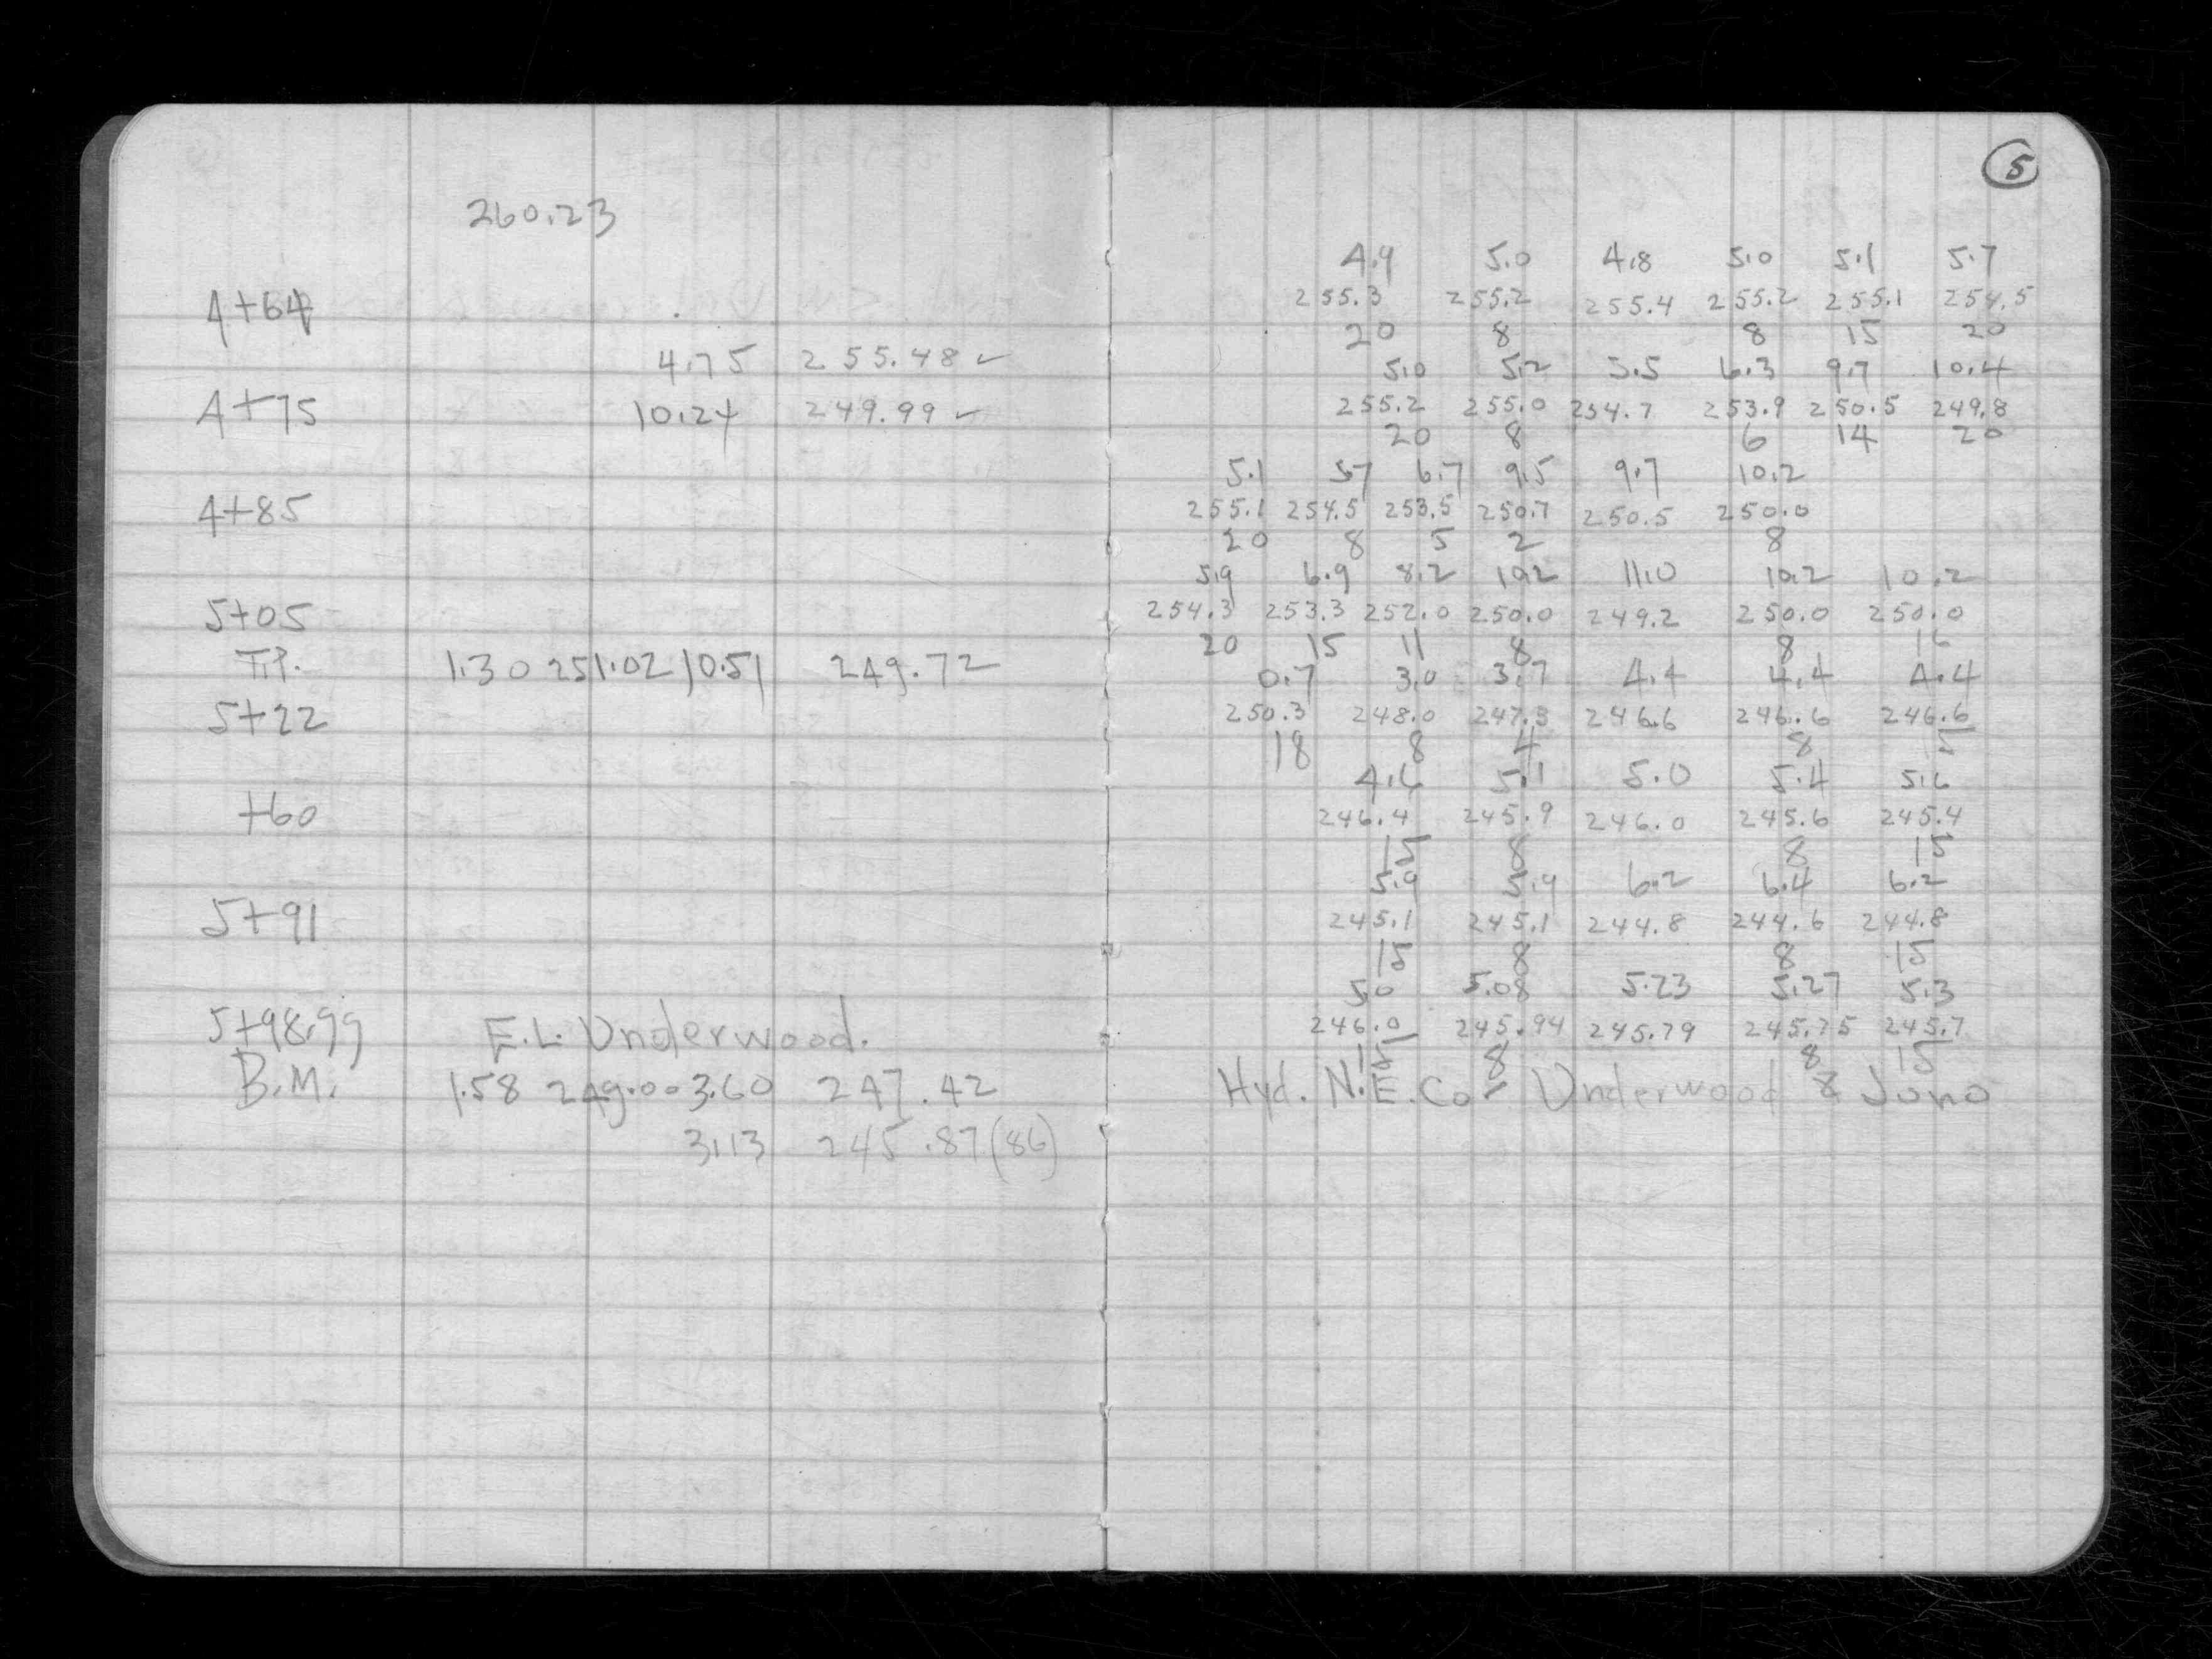 260.23
4+64
4.75 255.48 ✓
4+75 10.24 249.99 ✓
4+85
5+05
T.P. 1.30 251.02 10.51 249.72
5+22
+60
5+91
5+98.99 E.L. Underwood.
B.M. 1.58 249.00 3.60 247.42
3.13 245.87 (86)
5
4.9 5.0 4.8 5.0 5.1 5.7
255.3 255.2 255.4 255.2 255.1 254.5
20 8 8 15 20
5.0 5.2 5.5 6.3 9.7 10.4
255.2 255.0 254.7 253.9 250.5 249.8
20 8 6 14 20
5.1 5.7 6.7 9.5 9.7 10.2
255.1 254.5 253.5 250.7 250.5 250.0
20 8 5 2 8
5.9 6.9 8.2 10.2 11.0 10.2 10.2
254.3 253.3 252.0 250.0 249.2 250.0 250.0
20 15 11 8 8 16
0.7 3.0 3.7 4.4 4.4 4.4
250.3 248.0 247.3 246.6 246.6 246.6
18 8 4 8 15
4.6 5.1 5.0 5.4 5.6
246.4 245.9 246.0 245.6 245.4
15 8 8 15
5.9 5.9 6.2 6.4 6.2
245.1 245.1 244.8 244.6 244.8
15 8 8 15
5.0 5.08 5.23 5.27 5.3
246.0 245.94 245.79 245.75 245.7
15 8 8 15
Hyd. N.E. Cor Underwood & Juno